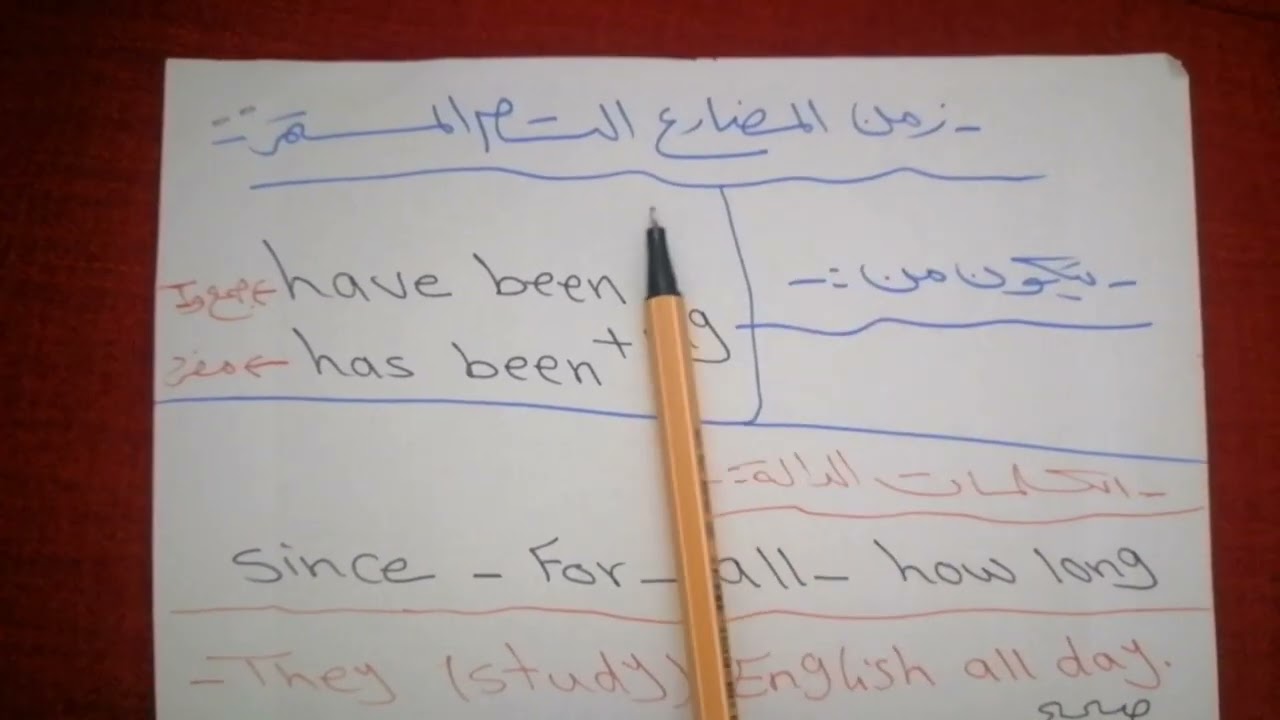 - زمن المضارع التام المستمر :-
- يتكون من :-
have been
has been +
- الكلمات الدالة :-
since - For - all - how long
- They (study) English all day.